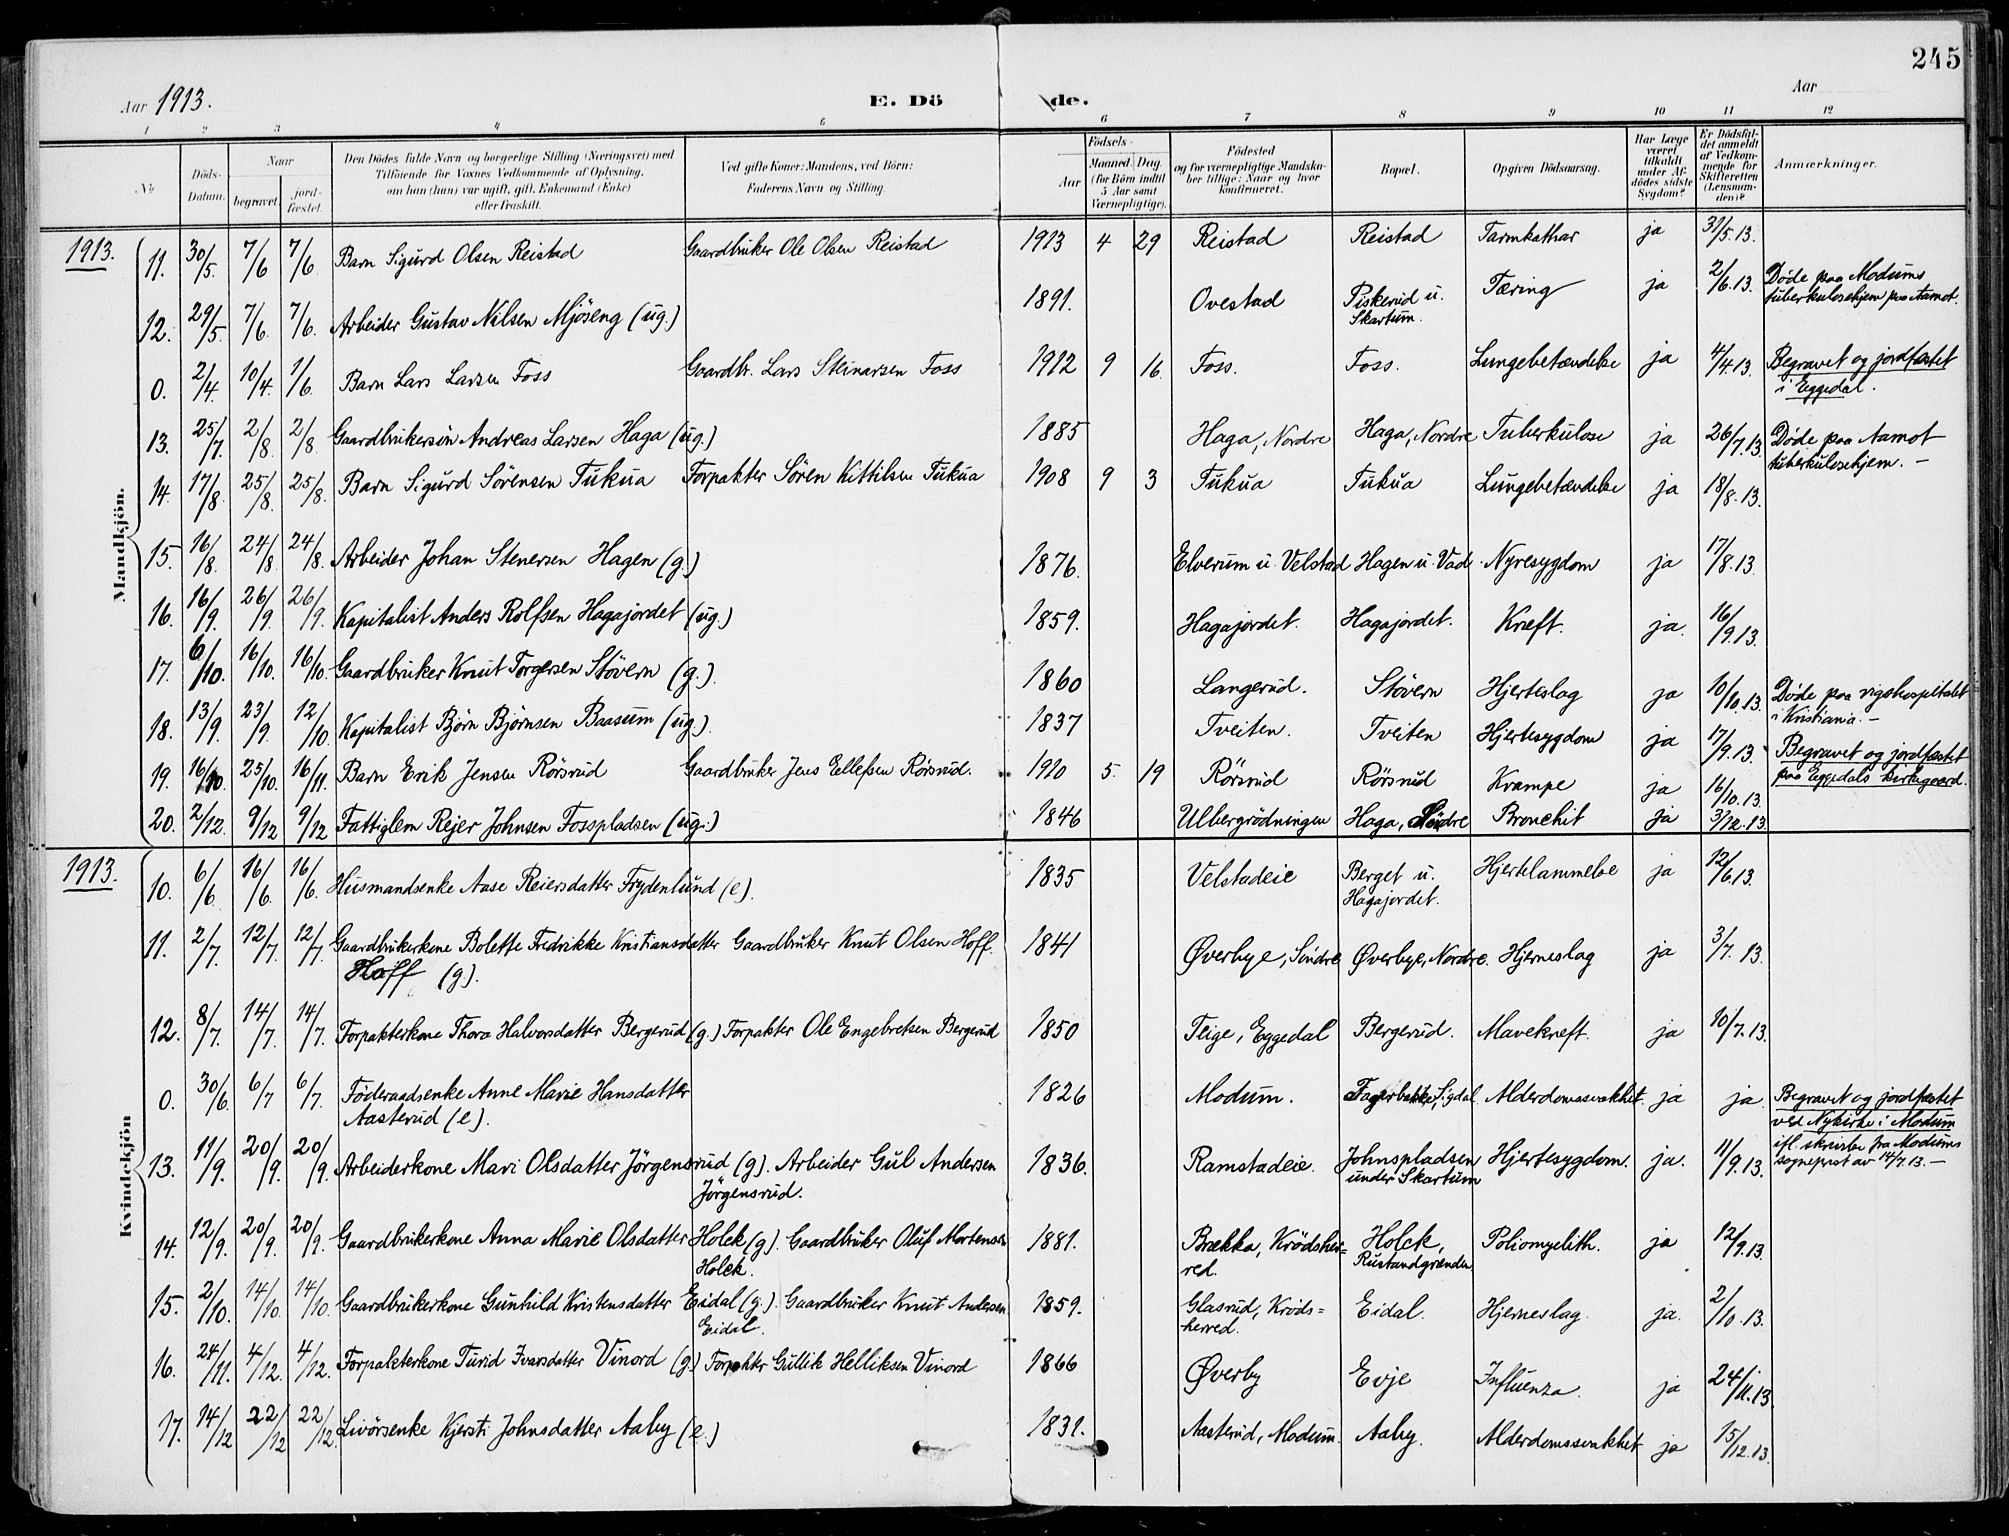 245
Aar 1913.
E. Dö
de.
Aar
1 2 3 4 5 6 7 8 9 10 11 12
No
Döds-Datum.
Naar
begravet.
jord-fæstet.
Den Dödes fulde Navn og borgerlige Stilling (Næringsvei) med
Tilföiende for Voxnes Vedkommende af Oplysning,
om han (hun) var ugift, gift, Enkemand (Enke)
eller fraskilt.
Ved gifte Koner: Mandens, ved Börn:
Faderens Navn og Stilling.
Födsels-
Aar
Maaned. Dag.
(for Börn indtil
5 Aar samt
Værnepligtige).
Födested
og for værnepligtige Mandska-
ber tillige: Naar og hvor
konfirmeret.
Bopæl.
Opgiven Dödsaarsag.
Har Læge
været
tilkaldt
under Af-
dödes sidste
Sygdom?
Er Dödsfal-
det anmeldt
af Vedkom-
mende for
Skifteretten
(Lensman-
den)?
Anmærkninger.
Mandkjön.
1913. 11. 30/5. 7/6 7/6. Barn Sigurd Olsen Reistad Gaardbruker Ole Olsen Reistad 1913 4 29 Reistad Reistad Tarmkathar ja 31/5.13.
12. 29/5. 7/6. 7/6. Arbeider Gustav Nilsen Mjöseng (ug.) 1891. Ovestad Piskerud u. Skartum. Tæring ja 2/6.13. Døde paa Modums tuberkulosehjem paa Aamot.
0. 2/4. 10/4. 1/6. Barn Lars Larsen Foss Gaardbr. Lars Steinarsen Foss 1912 9 16. Foss. Foss. Lungebetændelse ja 4/4.13. Begravet og jordfæstet i Eggedal.
13. 25/7. 2/8. 2/8. Gaardbrukersøn Andreas Larsen Haga (ug.) 1885 Haga, Nordre Haga, Nordre Tuberkulose ja 26/7.13. Døde paa Aamot tuberkulosehjem. –
14. 17/8. 25/8. 25/8. Barn Sigurd Sörensen Tukua Forpakter Sören Kittilsen Tukua 1908 9 3 Tukua Tukua Lungebetændelse ja 18/8.13.
15. 16/8. 24/8. 24/8. Arbeider Johan Stenersen Hagen (g.) 1876. Elverum u. Velstad Hagen u. Vad. Nyresygdom ja 17/8.13.
16. 16/9. 26/9. 26/9. Kapitalist Anders Rolfsen Hagajordet (ug.) 1859. Hagajordet. Hagajordet. Kræft. ja. 16/9.13.
17. 6/10. 16/10. 16/10. Gaardbruker Knut Torgersen Støvern (g.). 1860 Langerud. Støvern Hjerteslag ja 10/10.13. Døde paa rigshospitalet i Kristiania. –
18. 13/9. 23/9. 12/10. Kapitalist Bjørn Bjørnsen Baasum (ug.). 1837 Tveiten. Tveiten Hjertesygdom ja 17/9.13. Begravet og jordfæstet paa Eggedals kirkegaard.
19. 16/10. 25/10. 16/11. Barn Erik Jensen Rörsrud Gaardbruker Jens Ellefsen Rörsrud. 1910 5. 19 Rörsrud Rörsrud Krampe ja 16/10.13.
20. 2/12. 9/12 9/12 Fattiglem Rejer Johnsen Fosspladsen (ug.) 1846 Ulbergrödningen Haga, Söndre Bronchit ja 3/12.13.
Kvindekjön
1913. 10. 6/6. 16/6. 16/6. Husmandsenke Aase Reiersdatter Frydenlund (e). 1835 Velstadeie Berget u. Hagajordet. Hjertelammelse ja 12/6.13.
11. 2/7. 12/7. 12/7. Gaardbrukerkone Bolette Fredrikke Kristiansdatter Hoff (g). Gaardbruker Knut Olsen Hoff. 1841 Øverbye, Söndre Øverbye, Nordre. Hjerneslag ja 3/7.13.
12. 8/7. 14/7. 14/7. Forpakterkone Thora Halvorsdatter Bergerud (g.) Forpakter Ole Engebretsen Bergerud 1850 Teige, Eggedal Bergerud. Mavekræft. ja 10/7.13.
0. 30/6. 6/7 6/7. Föderaadsenke Anne Marie Hansdatter Aasterud (e). 1826 Modum. Fagerbakke, Sigdal Alderdomssvakhet. ja ja Begravet og jordfæstet ved Nykirke i Modum ifl. skrivelse fra Modums sogneprest av 14/7.13. –
13. 11/9. 20/9. 20/9. Arbeiderkone Mari Olsdatter Jörgensrud (g). Arbeider Gul Andersen Jörgensrud. 1836. Ramstadeie. Johnspladsen under Skartum Hjertesygdom. ja. 11/9.13.
14. 12/9. 20/9. 20/9. Gaardbrukerkone Anna Marie Olsdatter Holck (g). Gaardbruker Oluf Mortensen Holck. 1881. Brækka, Krödsher=red. Holck, Rustandgrenden Poliomyelith. ja 12/9.13.
15. 2/10. 14/10. 14/10. Gaardbrukerkone Gunhild Kristensdatter Eidal (g.). Gaardbruker Knut Andersen Eidal. 1859. Glasrud, Kröds=herred. Eidal. Hjerneslag. ja. 2/10.13.
16. 24/11. 4/12. 4/12. Forpakterkone Turid Ivarsdatter Vinord (g.) Forpakter Gullik Helliksen Vinord 1866 Øverby Evje Influenza. ja 24/11.13.
17. 14/12 22/12 22/12. Livörsenke Kjersti Johnsdatter Aaby (e.) 1831. Aasterud, Modum. Aaby. Alderdomssvakhet ja 15/12.13.